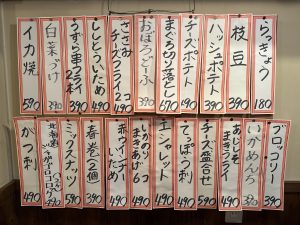 らっきょう 180
枝豆 390
ハッシュポテト 390
チーズポテト 490
まぐろ切り落とし 590
おぼろどーふ 390
ささみチーズフライ2コ 490
ししとういため 490
うずら串フライ2本 390
白菜づけ 390
イカ焼 590
ブロッコリー 390
いかめんち 390
あじしそまきフライ 490
チーズ盛合せ 590
てっぽう刺 490
エシャレット 490
いかのりまきあげ 490
赤ウインナーいため 490
春巻(2個) 390
ミックスナッツ 590
490
がつ刺 490